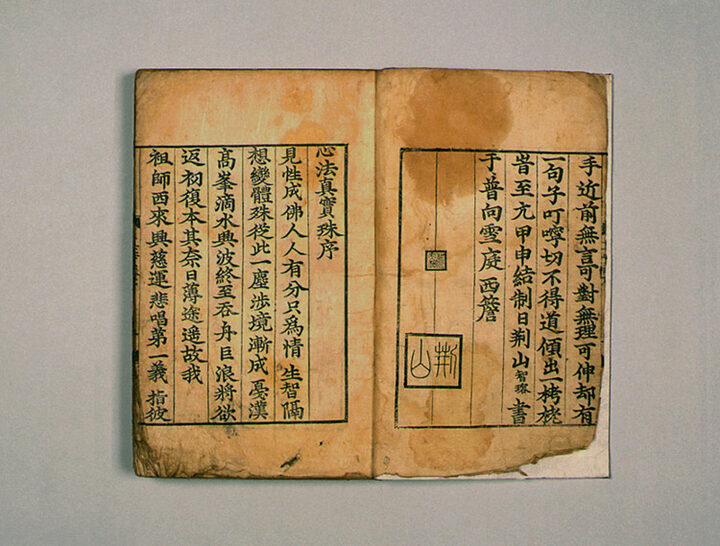 手近前無言可對無理可伸却有
一句子叮嚀切不得道傾出一栲栳
旹至元甲申結制日荆山智璨書
于普向雪庭西簷
荆山
心法真實珠序
見性成佛人人有分只為情生智隔
想變體殊從此一塵涉境漸成憂漢
高峯滴水興波終至吞舟巨浪將欲
返初復本其奈日薄途遥故我
祖師西來興慈運悲唱第一義指彼